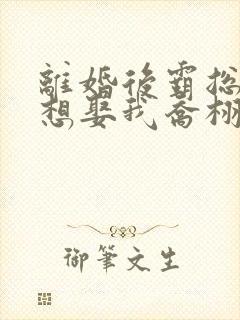 離婚後霸総
想娶我喬栩
御筆文生